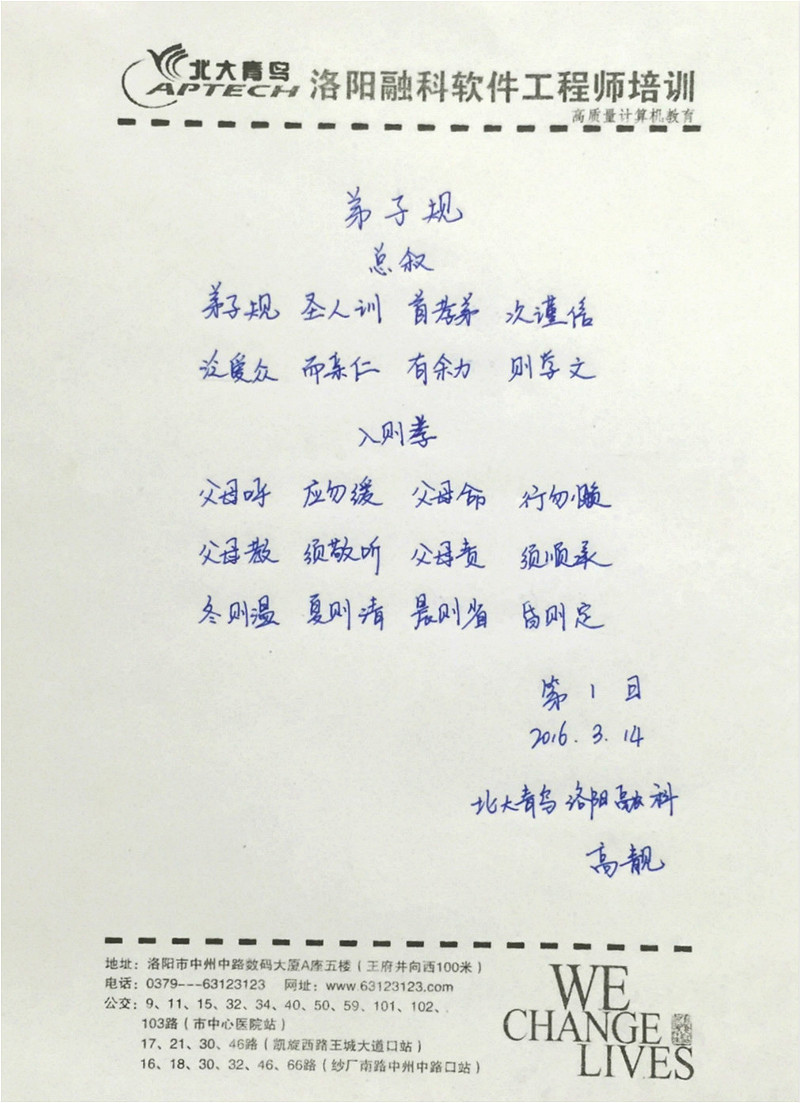 北大青鸟
APTECH 洛阳融科软件工程师培训
高质量计算机教育
弟子规
总叙
弟子规 圣人训 首孝弟 次谨信
泛爱众 而亲仁 有余力 则学文
入则孝
父母呼 应勿缓 父母命 行勿懒
父母教 须敬听 父母责 须顺承
冬则温 夏则清 晨则省 昏则定
第1日
2016.3.14
北大青鸟洛阳融科
高靓
地址：洛阳市中州中路数码大厦A座五楼（王府井向西100米）
电话：0379---63123123 网址：www.63123123.com
公交：9、11、15、32、34、40、50、59、101、102、
103路（市中心医院站）
17、21、30、46路（凯旋西路王城大道口站）
16、18、30、32、46、66路（纱厂南路中州中路口站）
WE
CHANGE
LIVES